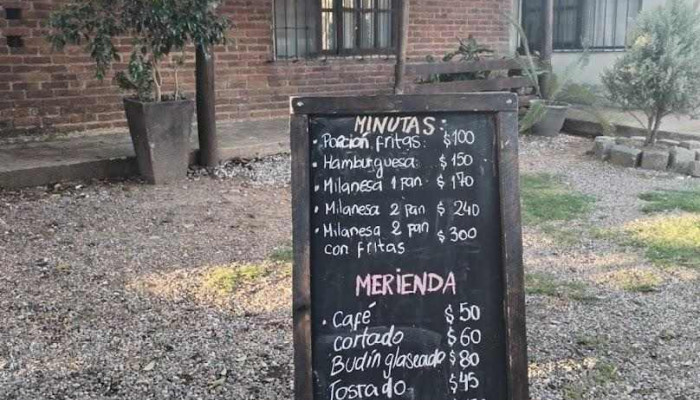 MINUTAS:
· Porción fritas: $100
· Hamburguesa: $150
· Milanesa 1 pan: $170
· Milanesa 2 pan $240
· Milanesa 2 pan $300
con fritas
MERIENDA
· Café $50
cortado $60
Budín glaseado $80
Tostado $45